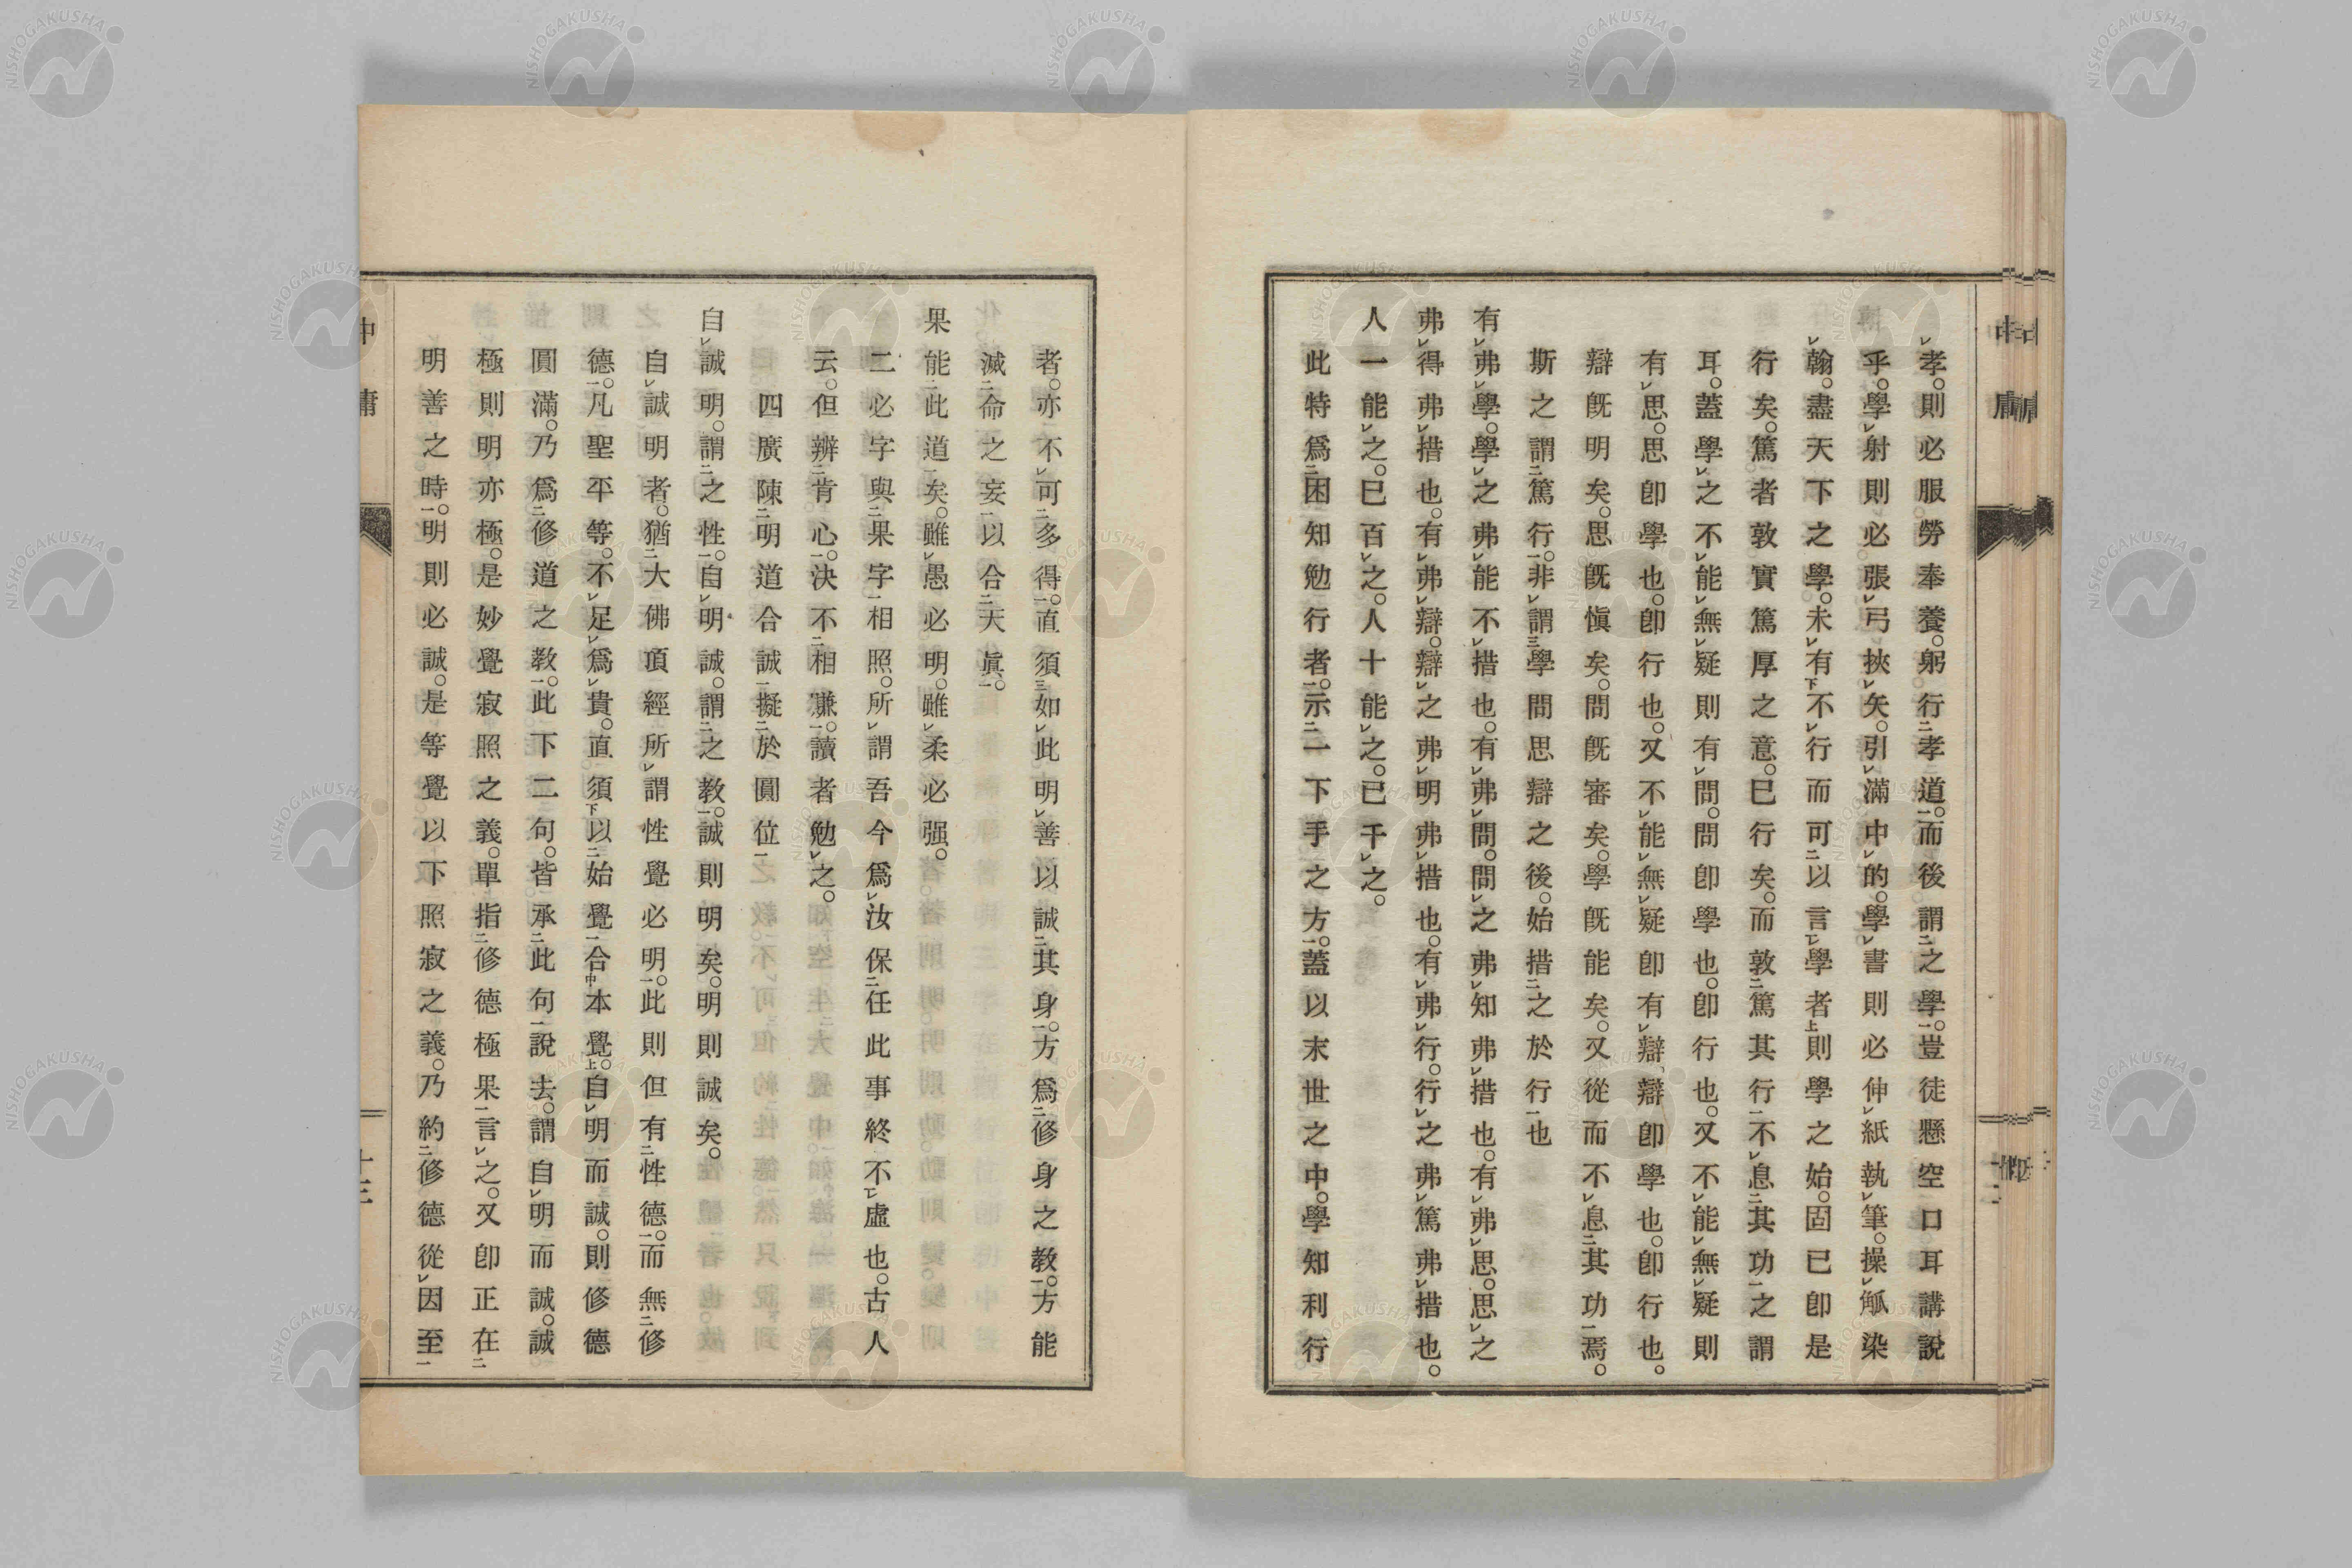 孝。則必服勞奉養。躬行孝道。而後謂之學。豈徒懸空口耳講說
乎。學射則必張弓挾矢。引滿中的。學書則必伸紙執筆。操觚染
翰。盡天下之學。未有不行而可以言學者則學之始。固已卽是
行矣。篤者敦實篤厚之意。已行矣。而敦篤其行不息其功之謂
耳。蓋學之不能無疑則有問。問卽學也。卽行也。又不能無疑則
有思。思卽學也。卽行也。又不能無疑卽有辯。辯卽學也。卽行也。
辯旣明矣。思旣愼矣。問旣審矣。學旣能矣。又從而不息其功焉。
斯之謂篤行。非謂學問思辯之後。始措之於行也
有弗學。學之弗能不措也。有弗問。問之弗知弗措也。有弗思。思之
弗得弗措也。有弗辯。辯之弗明弗措也。有弗行。行之弗篤弗措也。
人一能之。已百之。人十能之。已千之。
此特爲困知勉行者。示一下手之方。蓋以末世之中。學知利行
者。亦不可多得。直須如此明善以誠其身。方爲修身之教。方能
滅命之妄以合天眞。
果能此道矣。雖愚必明。雖柔必强。
二必字與果字相照。所謂吾今爲汝保任此事終不虛也。古人
云。但辨肯心。決不相賺。讀者勉之。
四廣陳明道合誠擬於圓位
自誠明。謂之性。自明誠。謂之教。誠則明矣。明則誠矣。
自誠明者。猶大佛頂經所謂性覺必明。此則但有性德。而無修
德。凡聖平等。不足爲貴。直須以始覺合本覺。自明而誠。則修德
圓滿。乃爲修道之教。此下二句。皆承此句說去。謂自明而誠。誠
極則明亦極。是妙覺寂照之義。單指修德極果言之。又卽正在
明善之時。明則必誠。是等覺以下照寂之義。乃約修德從因至
中庸
十三
NISHOGAKUSHA